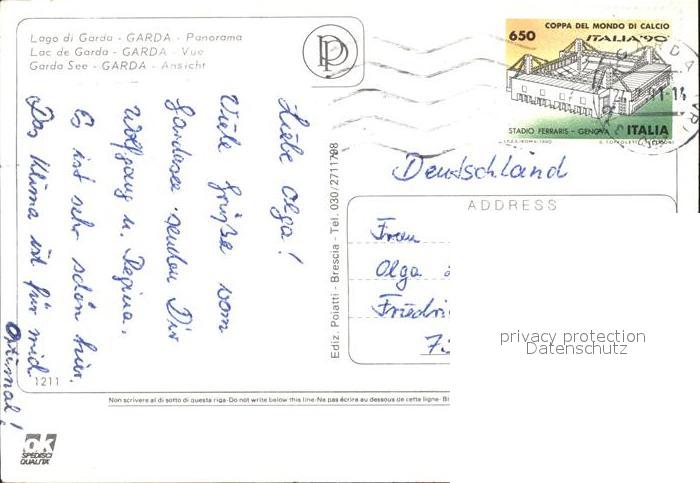 Lago di Garda - GARDA - Panorama
Lac de Garda - GARDA - Vue
Garda See - GARDA - Ansicht
COPPA DEL MONDO DI CALCIO
650
ITALIA '90
STADIO FERRARIS - GENOVA
ITALIA
Liebe Olga!
Viele Grüße vom
Gardasee senden Dir
Wolfgang u. Regina.
Es ist sehr schön hier.
Das Klima ist für mich
Optimal!
Ediz. Poiatti - Brescia - Tel. 030/2711788
Deutschland
ADDRESS
Frau
Olga
Friedri
privacy protection
Datenschutz
1211
Non scrivere al di sotto di questa riga-Do not write below this line-Ne pas écrire au dessous de cette ligne-
ok
SPEDISCI
QUALITÀ